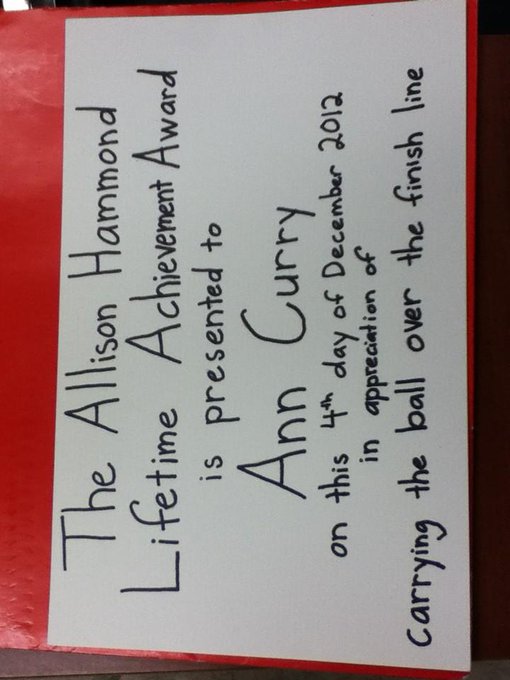 The Allison Hammond
Lifetime Achievement Award
is presented to
Ann Curry
on this 4th day of December 2012
in appreciation of
carrying the ball over the finish line